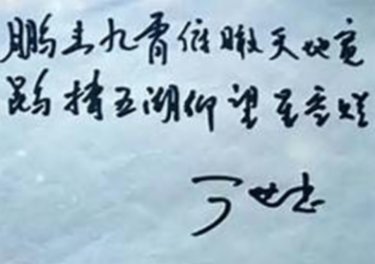 鹏击九霄俯瞰天地宽
鹍五湖仰望星空灿
丁世忠